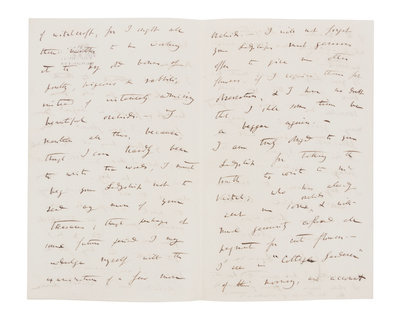 of witchcraft, for I might ask
them
it to my the bones of
poultry, pigeons & rabbits,
instead of intensely admiring
beautiful orchids. — I
mention all this, because
though I can hardly bear
to write the words, I must
beg your Ladyship not to
send any more of your
treasures; though perhaps at
some future period I may
indulge myself with the
examination of a few more
Orchids. — I will not forget
your Ladyships most generous
offer to give me other
flowers if I require them for
observation, & I have no doubt
that I shall soon turn
a beggar again. —
I am truly obliged to your
Ladyship for taking the
trouble to write to Mr
Veitch, who has already
sent me some, & with
orchids,
most generosity refused all
payment for cut flowers. —
I see in "Cottage Gardener"
of this morning, an account